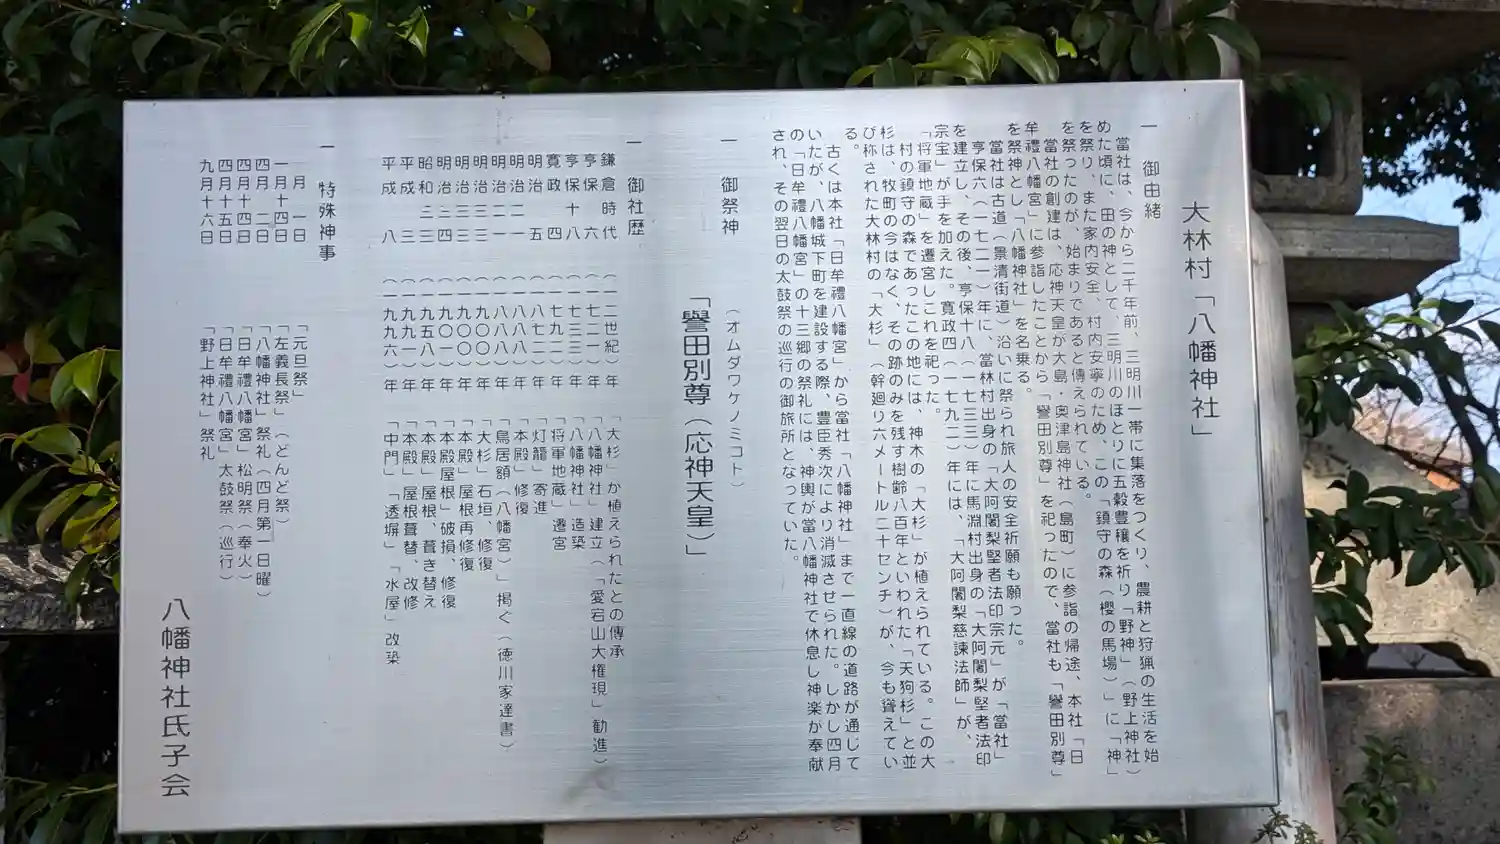 大林村「八幡神社」
一 御由緒
當社は、今から二千年前、三明川一帯に集落をつくり、農耕と狩猟の生活を始
めた頃に、田の神として、三明川のほとりに五穀豊穣を祈り「野神」（野上神社）
を祭り、また家内安全、村内安寧のため、この「鎮守の森（櫻の馬場）」に「神」
を祭ったのが、始まりであると傳えられている。
當社の創建は、応神天皇が大島・奥津島神社（島町）に参詣の帰途、本社「日
牟禮八幡宮」に参詣したことから「譽田別尊」を祀ったので、當社も「譽田別尊」
を祭神とし「八幡神社」を名乗る。
當社は古道（景清街道）沿いに祭られ旅人の安全祈願も願った。
亨保六（一七二一）年に、當林村出身の「大阿闍梨堅者法印宗元」が「當社」
を建立し、その後、亨保十八（一七三三）年に馬淵村出身の「大阿闍梨堅者法印
宗宝」が手を加えた。寛政四（一七九二）年には、「大阿闍梨慈諫法師」が、
「将軍地蔵」を遷宮しこれを祀った。
村の鎮守の森であったこの地には、神木の「大杉」が植えられている。この大
杉は、牧町の今はなく、その跡のみを残す樹齢八百年といわれた「天狗杉」と並
び称された大林村の「大杉」（幹廻り六メートル二十センチ）が、今も聳えてい
る。
古くは本社「日牟禮八幡宮」から當社「八幡神社」まで一直線の道路が通じて
いたが、八幡城下町を建設する際、豊臣秀次により消滅させられた。しかし四月
の「日牟禮八幡宮」の十三郷の祭礼には、神輿が當八幡神社で休息し神楽が奉献
され、その翌日の太鼓祭の巡行の御旅所となっていた。
一 御祭神
（オムダワケノミコト）
「譽田別尊（応神天皇）」
一 御社歴
鎌倉時代（一二世紀）年「大杉」か植えられたとの傳承
亨保六（一七二一）年「八幡神社」建立（「愛宕山大権現」勧進）
亨保十八（一七三三）年「八幡神社」造築
寛政四（一七九二）年「将軍地蔵」遷宮
明治五（一八七二）年「灯籠」寄進
明治二一（一八八八）年「本殿」修復
明治二一（一八八八）年「鳥居額（八幡宮）」掲ぐ（徳川家達書）
明治三三（一九〇〇）年「大杉」石垣、修復
明治三三（一九〇〇）年「本殿」屋根再修復
明治三四（一九〇一）年「本殿屋根」破損、修復
昭和三三（一九五八）年「本殿」屋根、葺き替え
平成三（一九九一）年「本殿」屋根葺替、改修
平成八（一九九六）年「中門」「透塀」「水屋」改築
一 特殊神事
一月一日「元旦祭」
一月十四日「左義長祭」（どんど祭）
四月二日「八幡神社」祭礼（四月第一日曜）
四月十四日「日牟禮八幡宮」松明祭（奉火）
四月十五日「日牟禮八幡宮」太鼓祭（巡行）
九月十六日「野上神社」祭礼
八幡神社氏子会